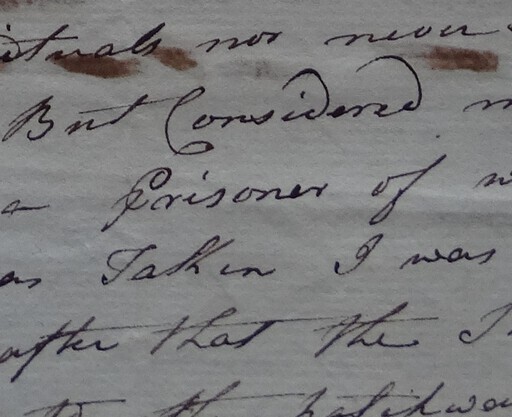 nor never
But Considered
a Prisoner of
as Taken I was
after that the
to the